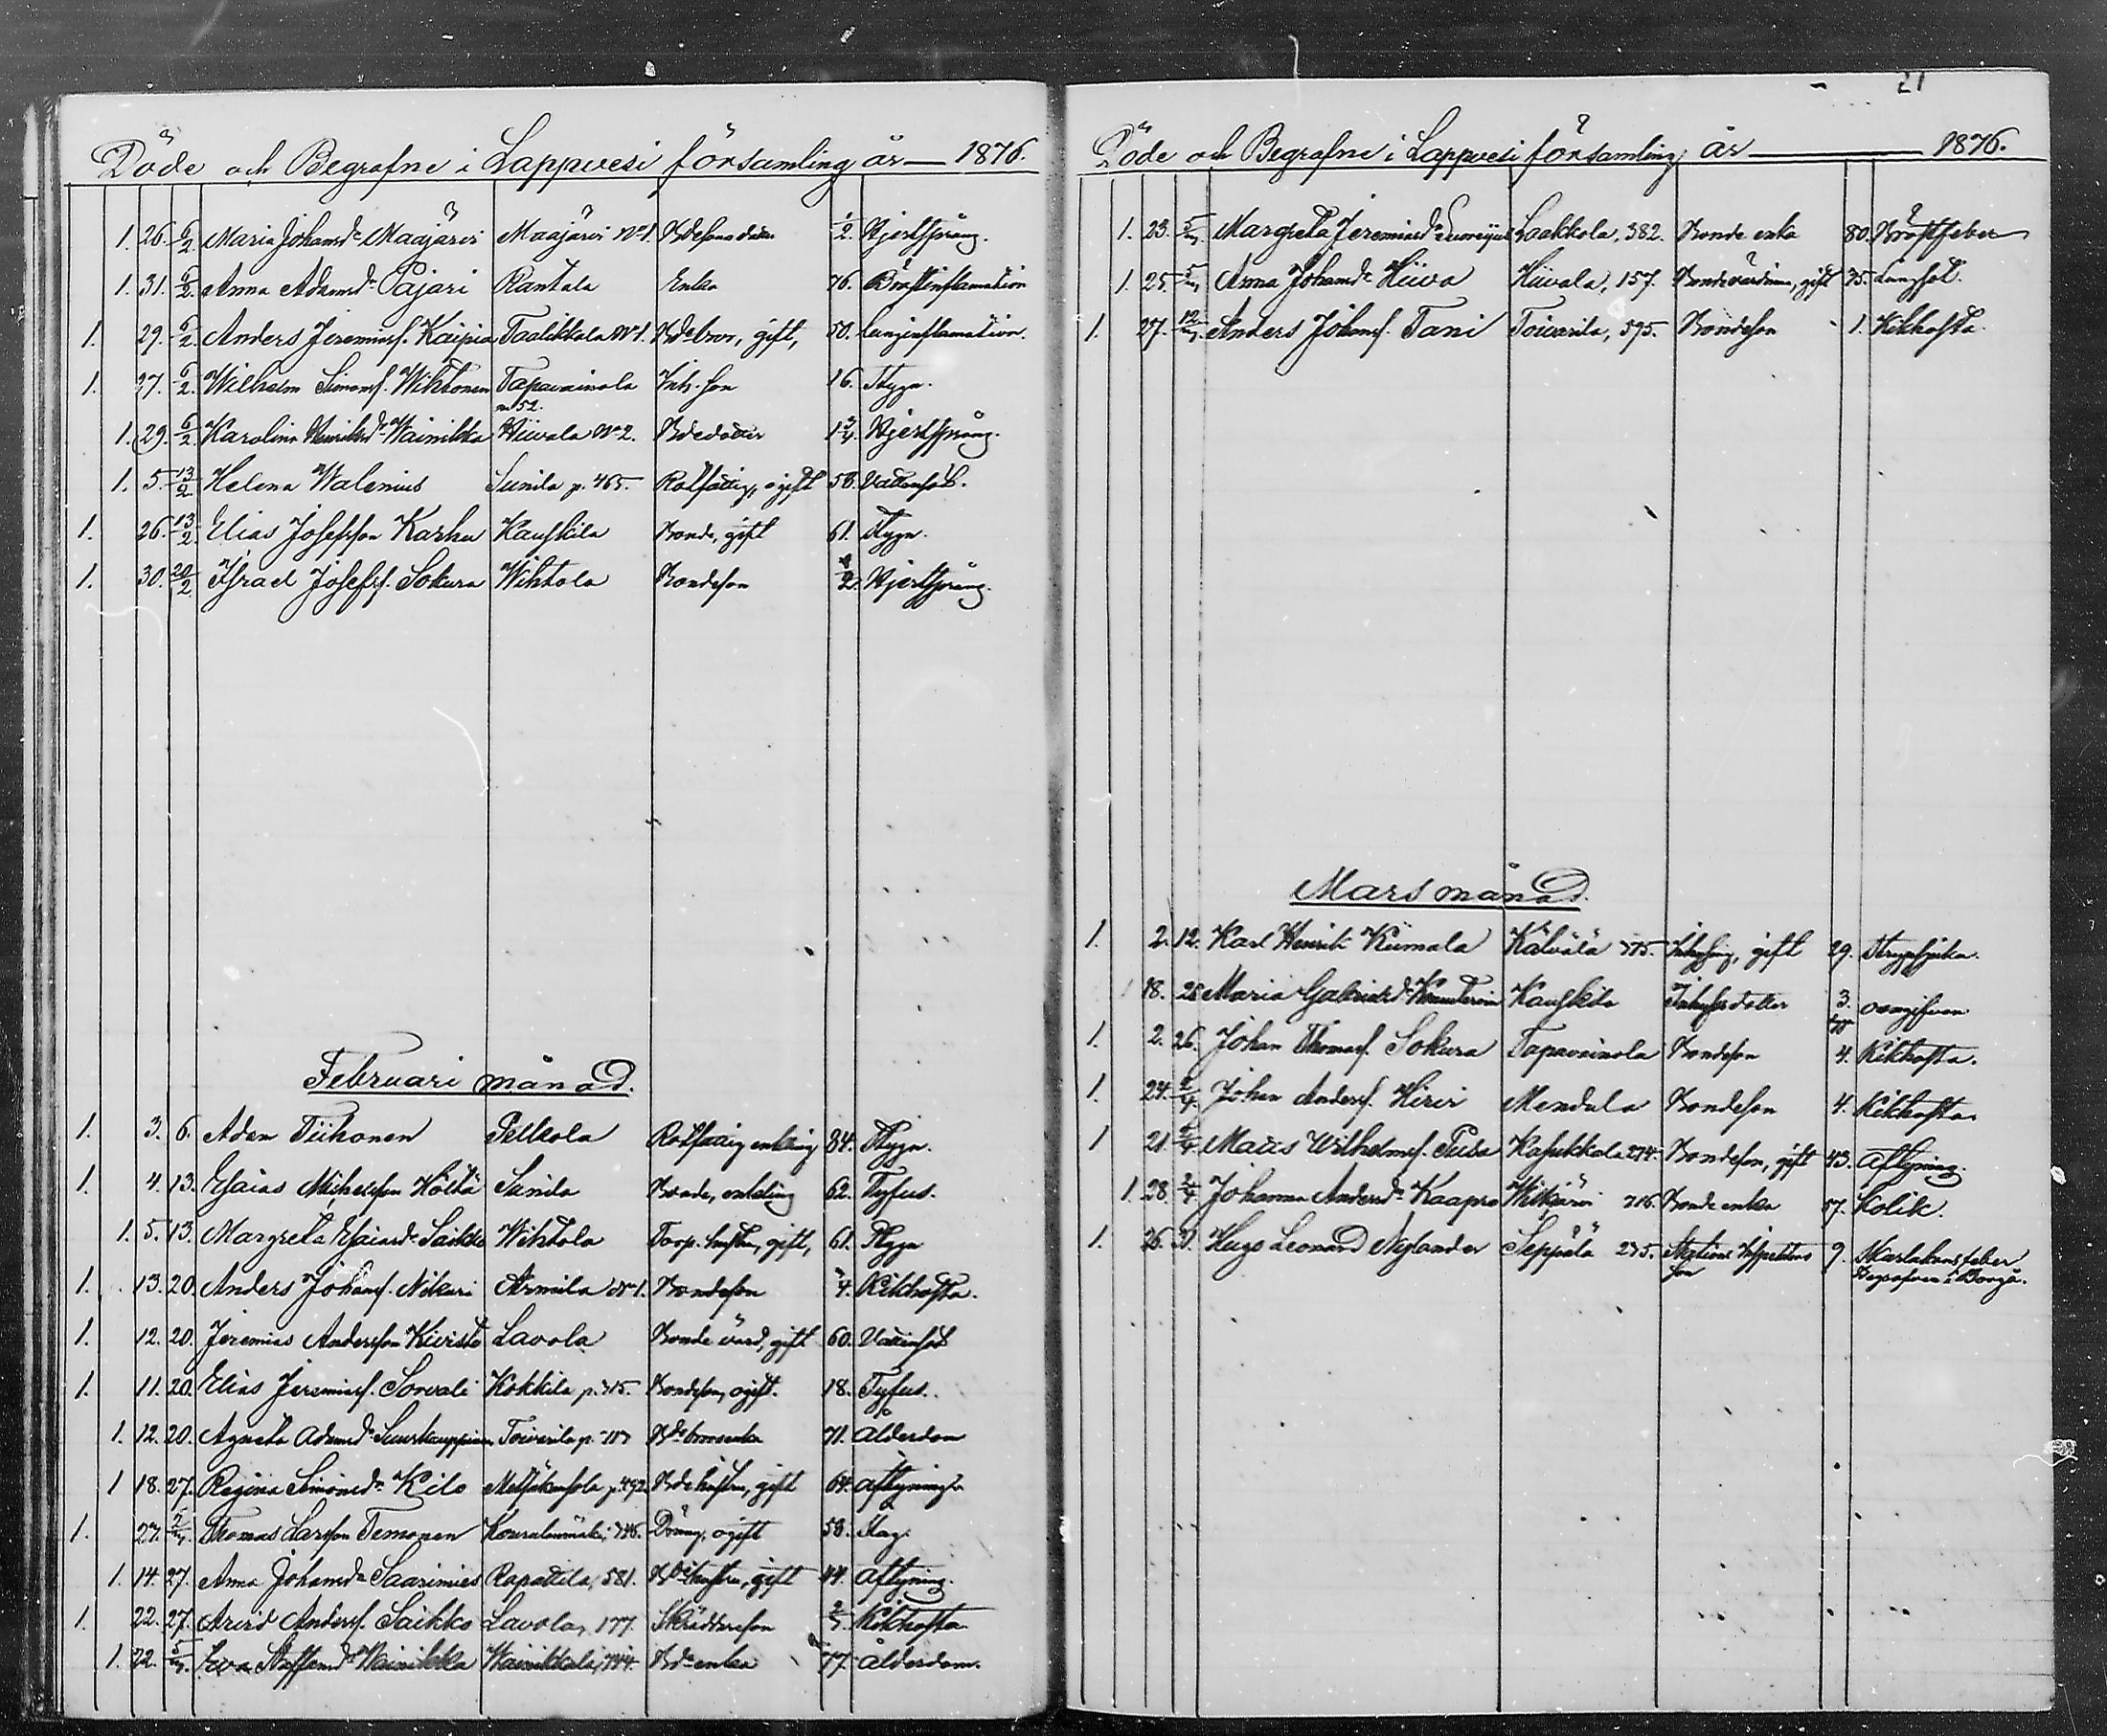 Döde och Begrafne i Lappvesi församling år — 1876.
1. 26. 6/2 Maria Johansd. Maajärvi Maajärvi No 1. Bdesonsdotter 1/2. Hjertsprång.
1. 31. 6/2. Anna Adamsd. Pajari Rantala Enka 76. Bröstinflamation
1. 29. 6/2 Anders Jeremiasf. Kaipia Taalikkala No 1. Bdebror, gift, 50. lunginflamation.
1. 27. 6/2. Wilhelm Simonsf. Wihtonen Tapavainola Inh. son 16. Stygn.
no 52.
1. 29. 6/2 Karolina Henriksd. Wainikka Hiivala No 2. Bdedotter 1 3/4. Hjertsprång.
1. 5. 13/2 Helena Walenius Sunila p. 465. Rotfattig, ogift 58. Vattensot.
1. 26. 13/2 Elias Josefsson Karhu Kauskila Bonde, gift 61. Stygn.
1. 30. 20/2 Israel Josefsf. Sokura Wihtola Bondeson Hjertsprång.
Februari månad.
1. 3. 6. Adam Tiihonen Pelkola Rotfattig enkling 84. Stygn.
1. 4. 13. Esaias Michelsson Hölttä Sunila Bonde, enkling 62. Tyfus.
1. 5. 13. Margreta Esaiasd. Saikko Wihtola Torp. hustru, gift, 61. Stygn
1. 13. 20. Anders Johansf. Nikuri Armila No 1. Bondeson Kikhosta.
1. 12. 20. Jeremias Andersson Kiviste Lavola Bonde värd, gift 60. Vattensot
1. 11. 20. Elias Jeremiasf. Sorvali Kokkila p. 315. Bondeson, ogift. 18. Tyfus.
1. 12. 20. Agneta Adamsd. Suurkauppinen Toivarila p. Bdebrorsenka 71. Ålderdom
1 18. 27. Regina Simonsd. Kilo Metsäkansola p. 492 Bdehustru, gift 64. aftyning
1. 27. Thomas Larsson Temonen Dräng, ogift 58. Slag.
1. 14. 27. Anna Johansd. Saarimies Rapattila, 581. Bdehustru, gift 44. aftyning.
1. 22. 27. Arvid Andersf. Saikko Lavola, 177. Skräddareson Kikhosta
1. 22. 5/3. Eva Staffansd. Wainikka Wainikkala, Bdeenka 77. ålderdom.
21
Döde och Begrafne i Lappvesi församling år — 1876.
1. 23. 5/3 Margreta Jeremiasd. Laakkola, 382. Bonde enka 80. Bröstfeber
1. 25. 5/3 Anna Johansd. Hiiva Hiivala, 157. Bondevärdinna, gift 35. Lungsot.
1. 27. 12/3. Anders Johansf. Tani Toivarila, 595. Bondeson 1. Kikhosta.
Mars månad.
1. 2. 12. Karl Henrik Kiimala Kälvälä 375. Inhysing, gift 29. Strupsjuka.
18. 26 Maria Gabrielsd. Kauskila Inhysesdotter 3. oangifven
1. 2. 26. Johan Thomasf. Sokura Tapavainola Bondeson 4. Kikhosta.
1. 24. 2/4. Johan Andersf. Hirvi Mendula Bondeson 4. Kikhosta.
1 21. 2/4. Matts Wilhelmsf. Pusa Kasukkala 274. Bondeson, gift 43. aftyning.
1. 28. 2/4 Johanna Andersd. Kaapro Hitjärvi 216. Bonde enka 57. Kolik.
1. 26. 31. Hugo Leonard Nylander Seppälä 235. Stations Inspektors 9. Skarlakansfeber
son Begrafven i Borgå.